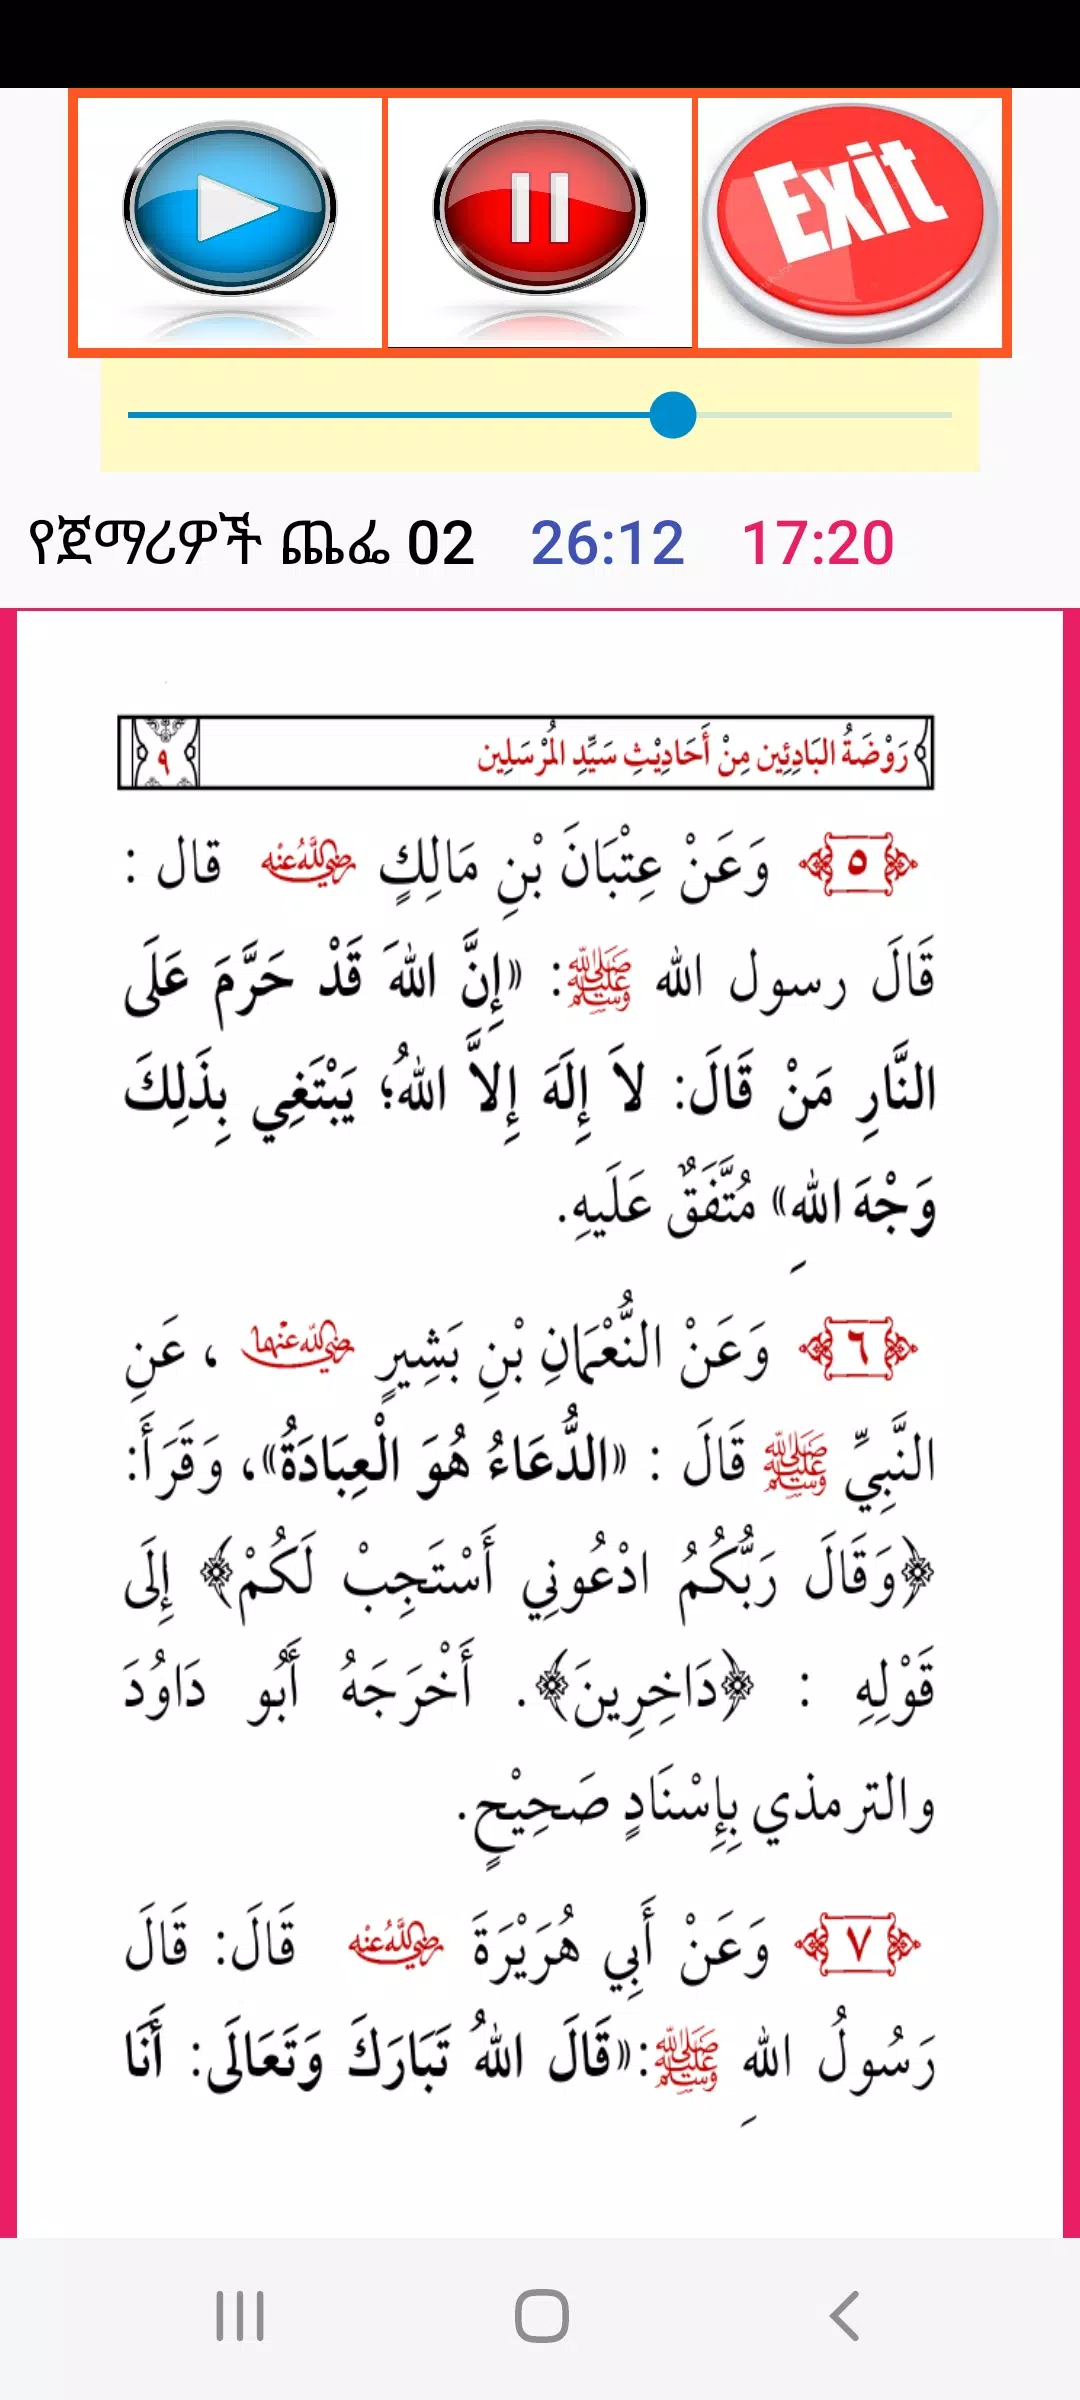 Exit
የጀማሪዎች ጨፌ 02 26:12 17:20
رَوْضَةُ البَادِئِين مِنْ أَحَادِيْثِ سَيِّدِ المُرْسَلِين ٩
٥ وَعَنْ عِتْبَانَ بْنِ مَالِكٍ رضي الله عنه قال :
قَالَ رسول الله صلى الله عليه وسلم: «إِنَّ اللهَ قَدْ حَرَّمَ عَلَى
النَّارِ مَنْ قَالَ: لاَ إِلَهَ إِلاَّ اللهُ؛ يَبْتَغِي بِذَلِكَ
وَجْهَ اللهِ» مُتَّفَقٌ عَلَيهِ.
٦ وَعَنْ النُّعْمَانِ بْنِ بَشِيرٍ رضي الله عنهما ، عَنِ
النَّبِيِّ صلى الله عليه وسلم قَالَ : «الدُّعَاءُ هُوَ الْعِبَادَةُ»، وَقَرَأَ:
﴿وَقَالَ رَبُّكُمُ ادْعُونِي أَسْتَجِبْ لَكُمْ﴾ إِلَى
قَوْلِهِ : ﴿دَاخِرِينَ﴾. أَخْرَجَهُ أَبُو دَاوُدَ
والترمذي بِإِسْنَادٍ صَحِيْحٍ.
٧ وَعَنْ أَبِي هُرَيْرَةَ رضي الله عنه قَالَ: قَالَ
رَسُولُ اللهِ صلى الله عليه وسلم:«قَالَ اللهُ تَبَارَكَ وَتَعَالَى: أَنَا